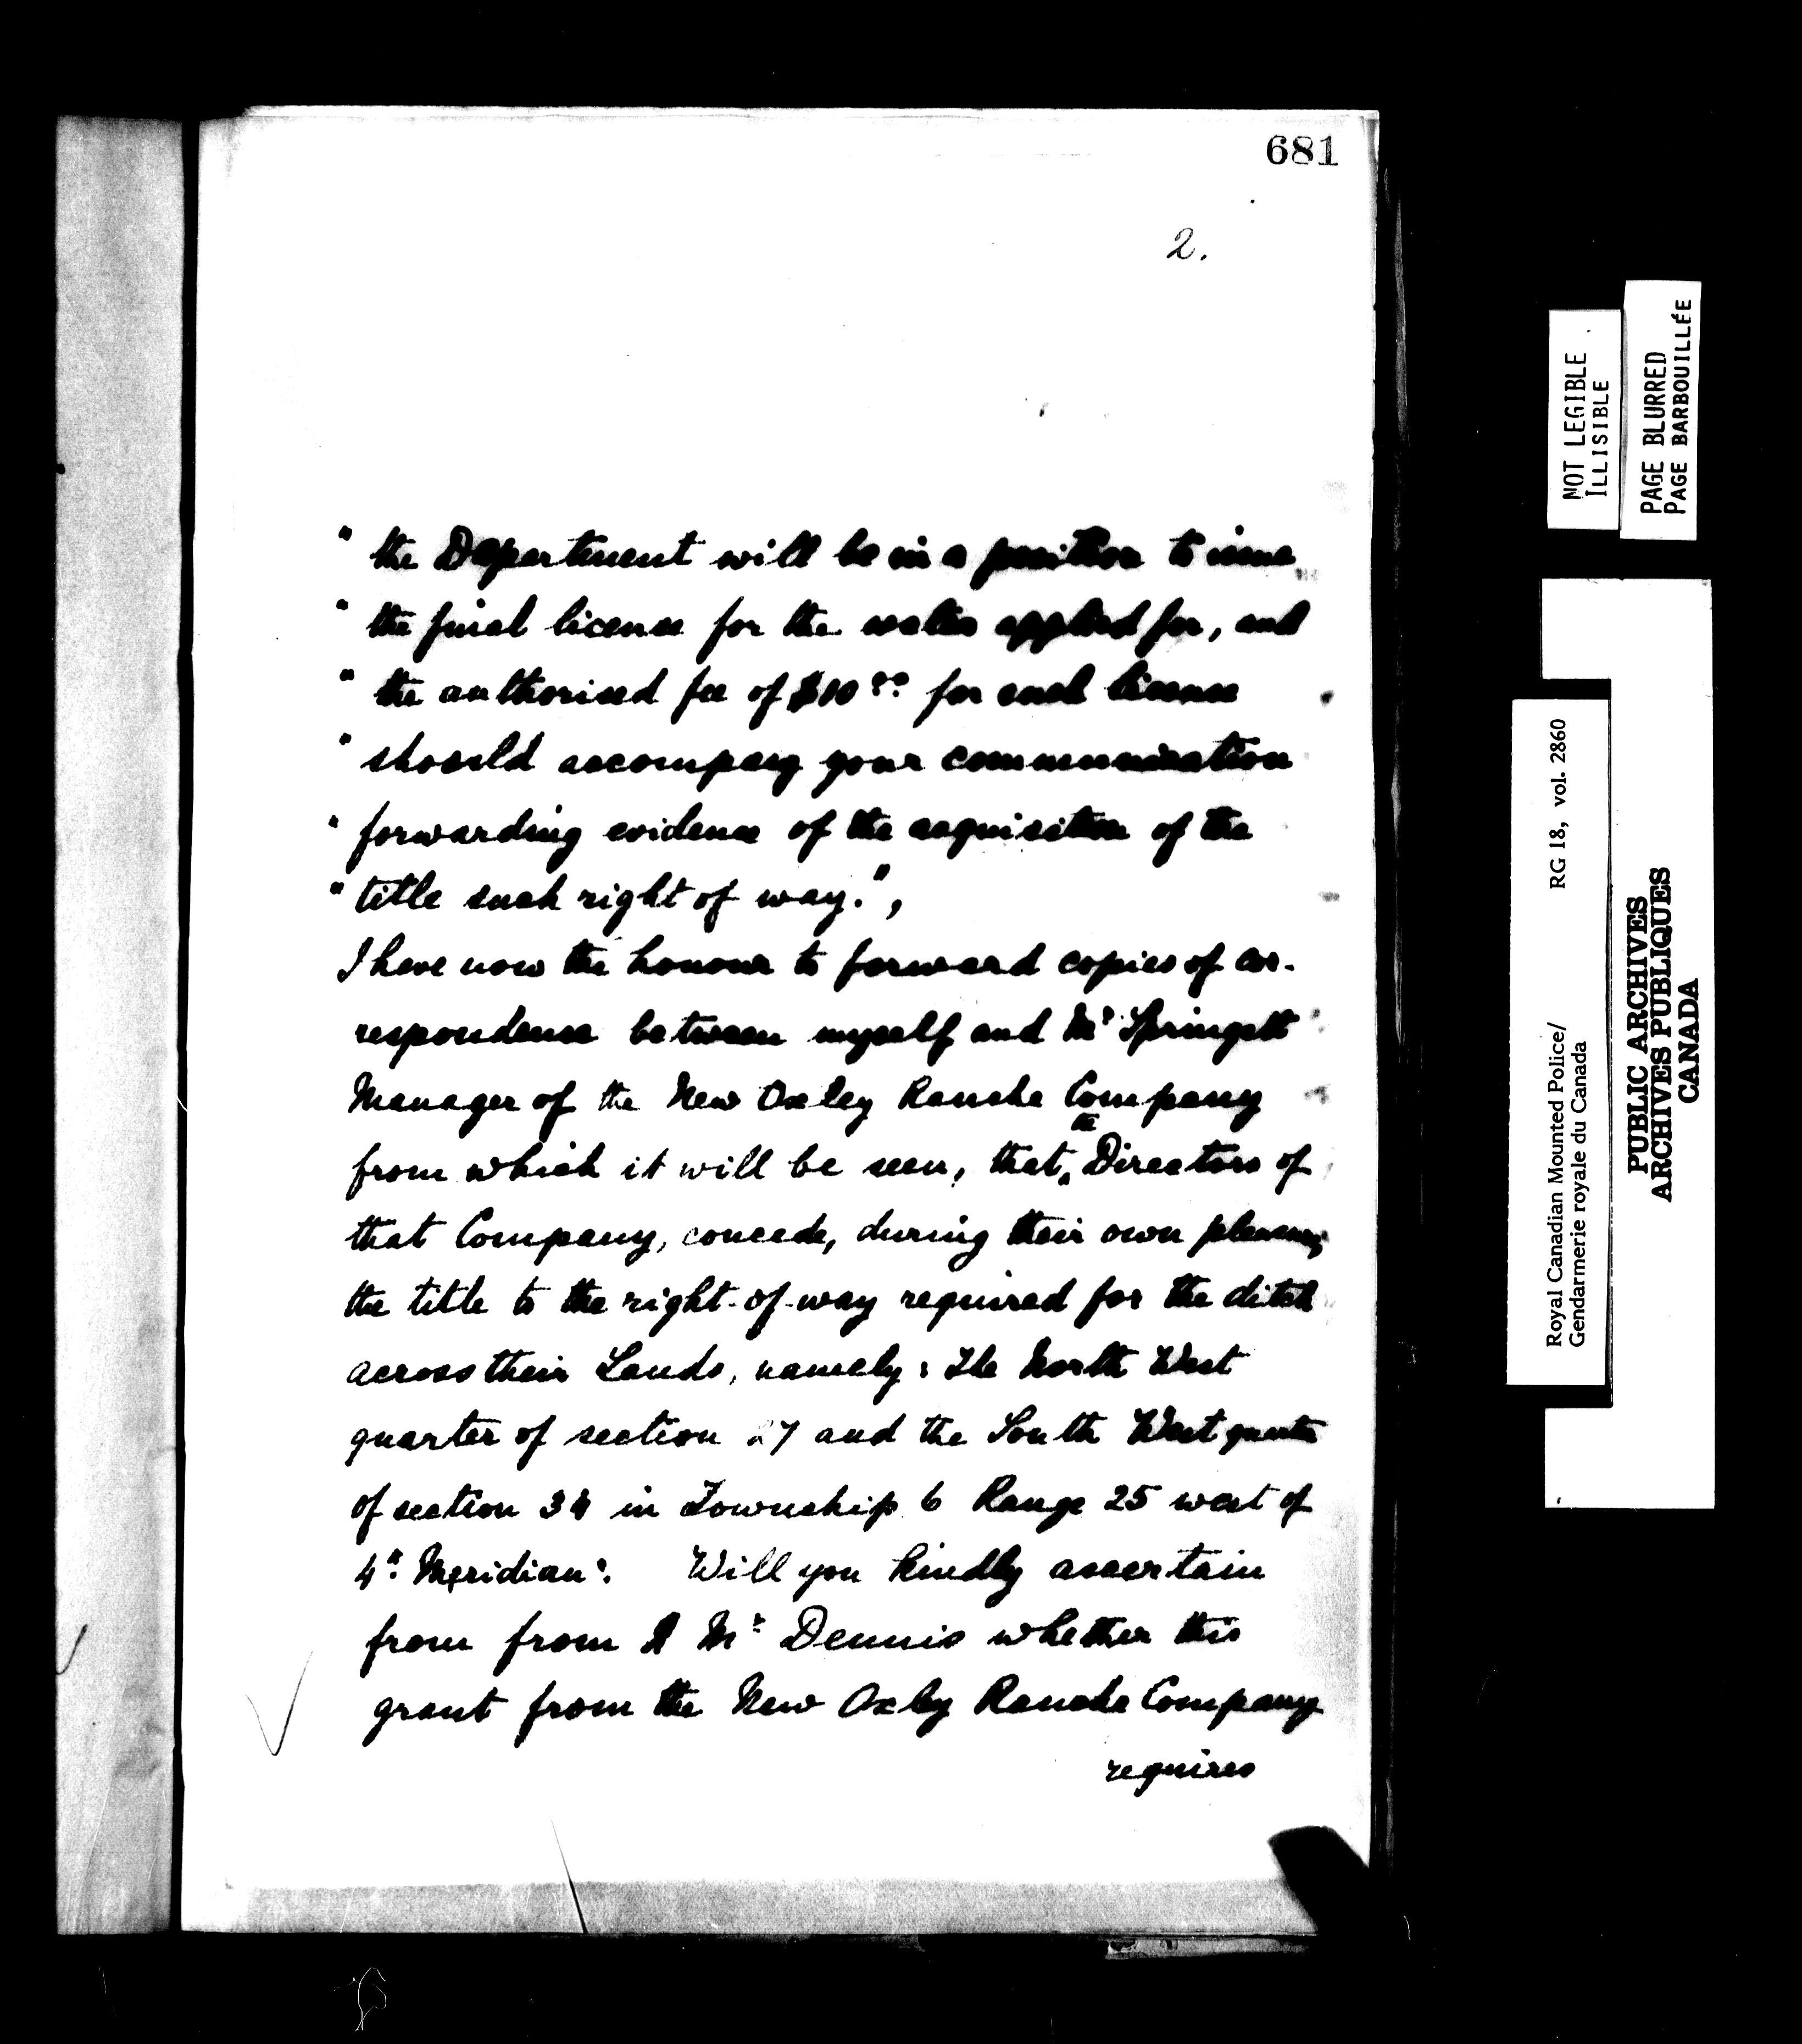 681
2.
" the Department will be in a position to issue
" the final license for the water applied for, and
" the authorised fee of $10.00 for such license
" should accompany your communication
" forwarding evidence of the acquisition of the
" title such right of way.",
I have now the honour to forward copies of cor-
respondence between myself and Mr Springett
Manager of the New Oxley Ranche Company
from which it will be seen, that the Directors of
that Company, concede, during their own pleasure,
the title to the right-of-way required for the ditch
across their Lands, namely: The North West
quarter of section 27 and the South West quarter
of section 34 in Township 6 Range 25 west of
4th Meridian. Will you kindly ascertain
from from Mr Dennis whether this
grant from the New Oxley Ranche Company
requires
NOT LEGIBLE
ILLISIBLE
PAGE BLURRED
PAGE BARBOUILLÉE
Royal Canadian Mounted Police/ RG 18, vol. 2860
Gendarmerie royale du Canada
PUBLIC ARCHIVES
ARCHIVES PUBLIQUES
CANADA